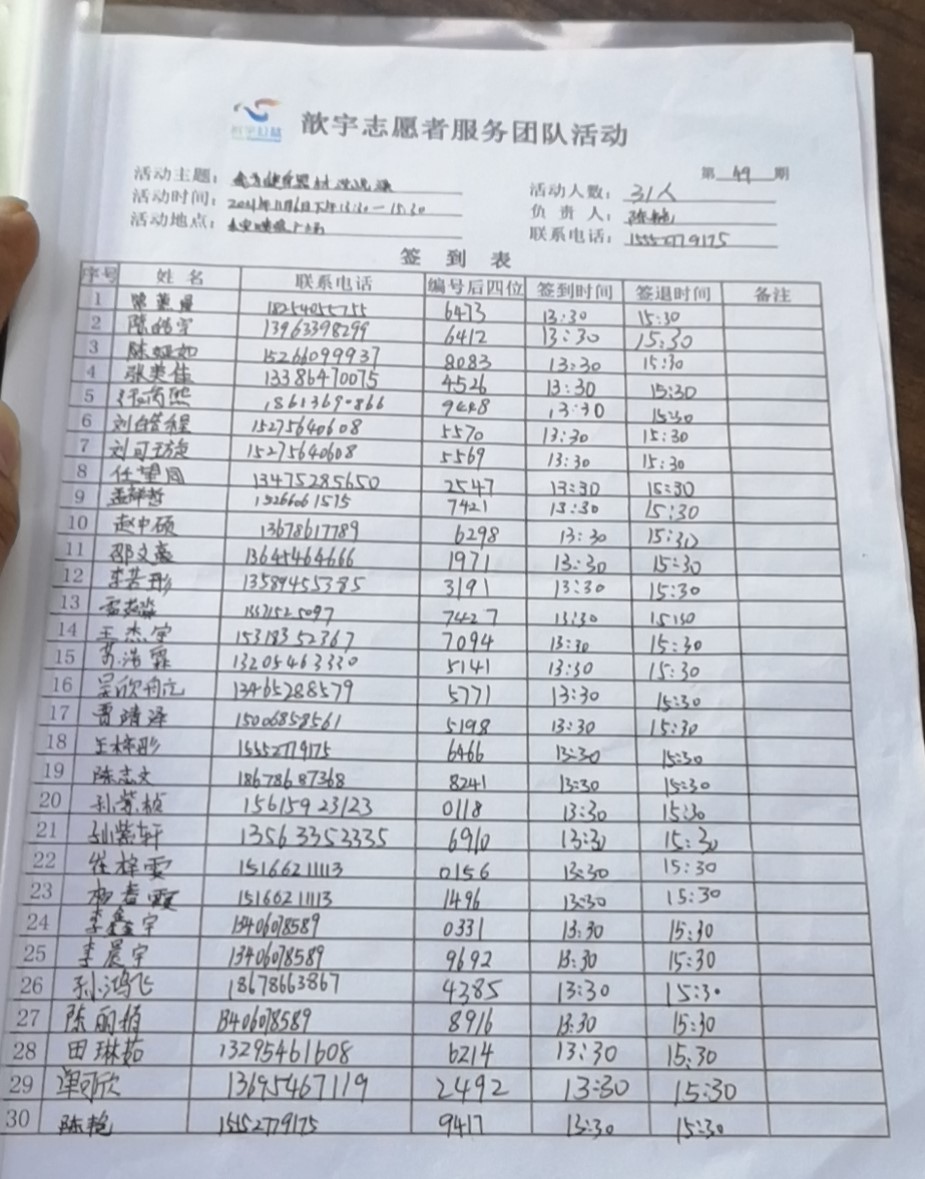 歆宇志愿者服务团队活动
第 49 期
活动主题：
活动人数： 31人
活动时间： 13:30—15:30
负责人： 陈艳
活动地点：
联系电话： 15552779175
签到表
序号 姓名 联系电话 编号后四位 签到时间 签退时间 备注
1 18254055755 6473 13:30 15:30
2 13963398299 6412 13:30 15:30
3 15266099937 8083 13:30 15:30
4 张美佳 13386470075 4526 13:30 15:30
5 9448 13:30 15:30
6 15275640608 5570 13:30 15:30
7 15275640608 5569 13:30 15:30
8 任望同 13475285650 2547 13:30 15:30
9 7421 13:30 15:30
10 赵中硕 13678617789 6298 13:30 15:30
11 13645464666 1971 13:30 15:30
12 13589455385 3191 13:30 15:30
13 7427 13:30 15:30
14 王杰宇 15318352367 7094 13:30 15:30
15 苏浩霖 13205463330 5141 13:30 15:30
16 13465288579 5771 13:30 15:30
17 曹靖泽 15006858561 5198 13:30 15:30
18 王梓彤 15552779175 6466 13:30 15:30
19 陈志文 18678687368 8241 13:30 15:30
20 孙紫桢 15615923123 0118 13:30 15:30
21 孙紫轩 13563352335 6910 13:30 15:30
22 崔梓雯 15166211113 0156 13:30 15:30
23 杨春霞 15166211113 1496 13:30 15:30
24 李鑫宇 13406078589 0331 13:30 15:30
25 李晨宇 13406078589 9692 13:30 15:30
26 孙鸿飞 18678663867 4385 13:30 15:30
27 陈丽桢 13406078589 8916 13:30 15:30
28 田琳茹 13295461608 6214 13:30 15:30
29 13695467119 2492 13:30 15:30
30 陈艳 15552779175 9417 13:30 15:30